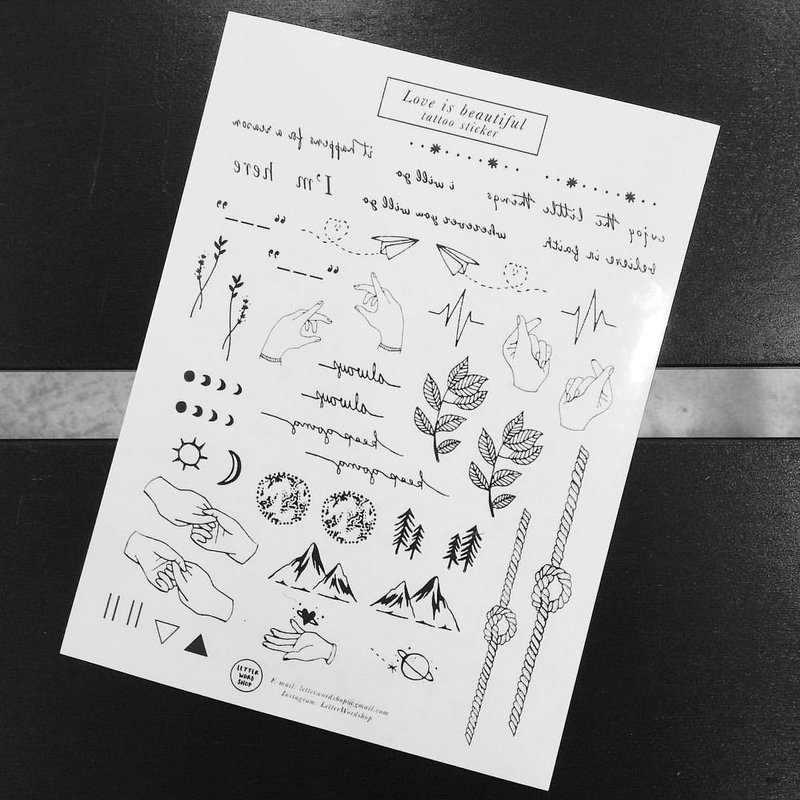 Love is beautiful
tattoo sticker
it happens for a reason
I'm here
i will go
wherever you will go
enjoy the little things
believe in faith
always
always
keep going
keep going
LETTER
WORD
SHOP
E-mail: letterwordshop@gmail.com
Instagram: LetterWordshop